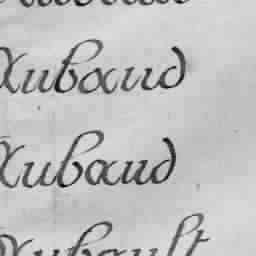 Aubaud
Aubaud
Aubault